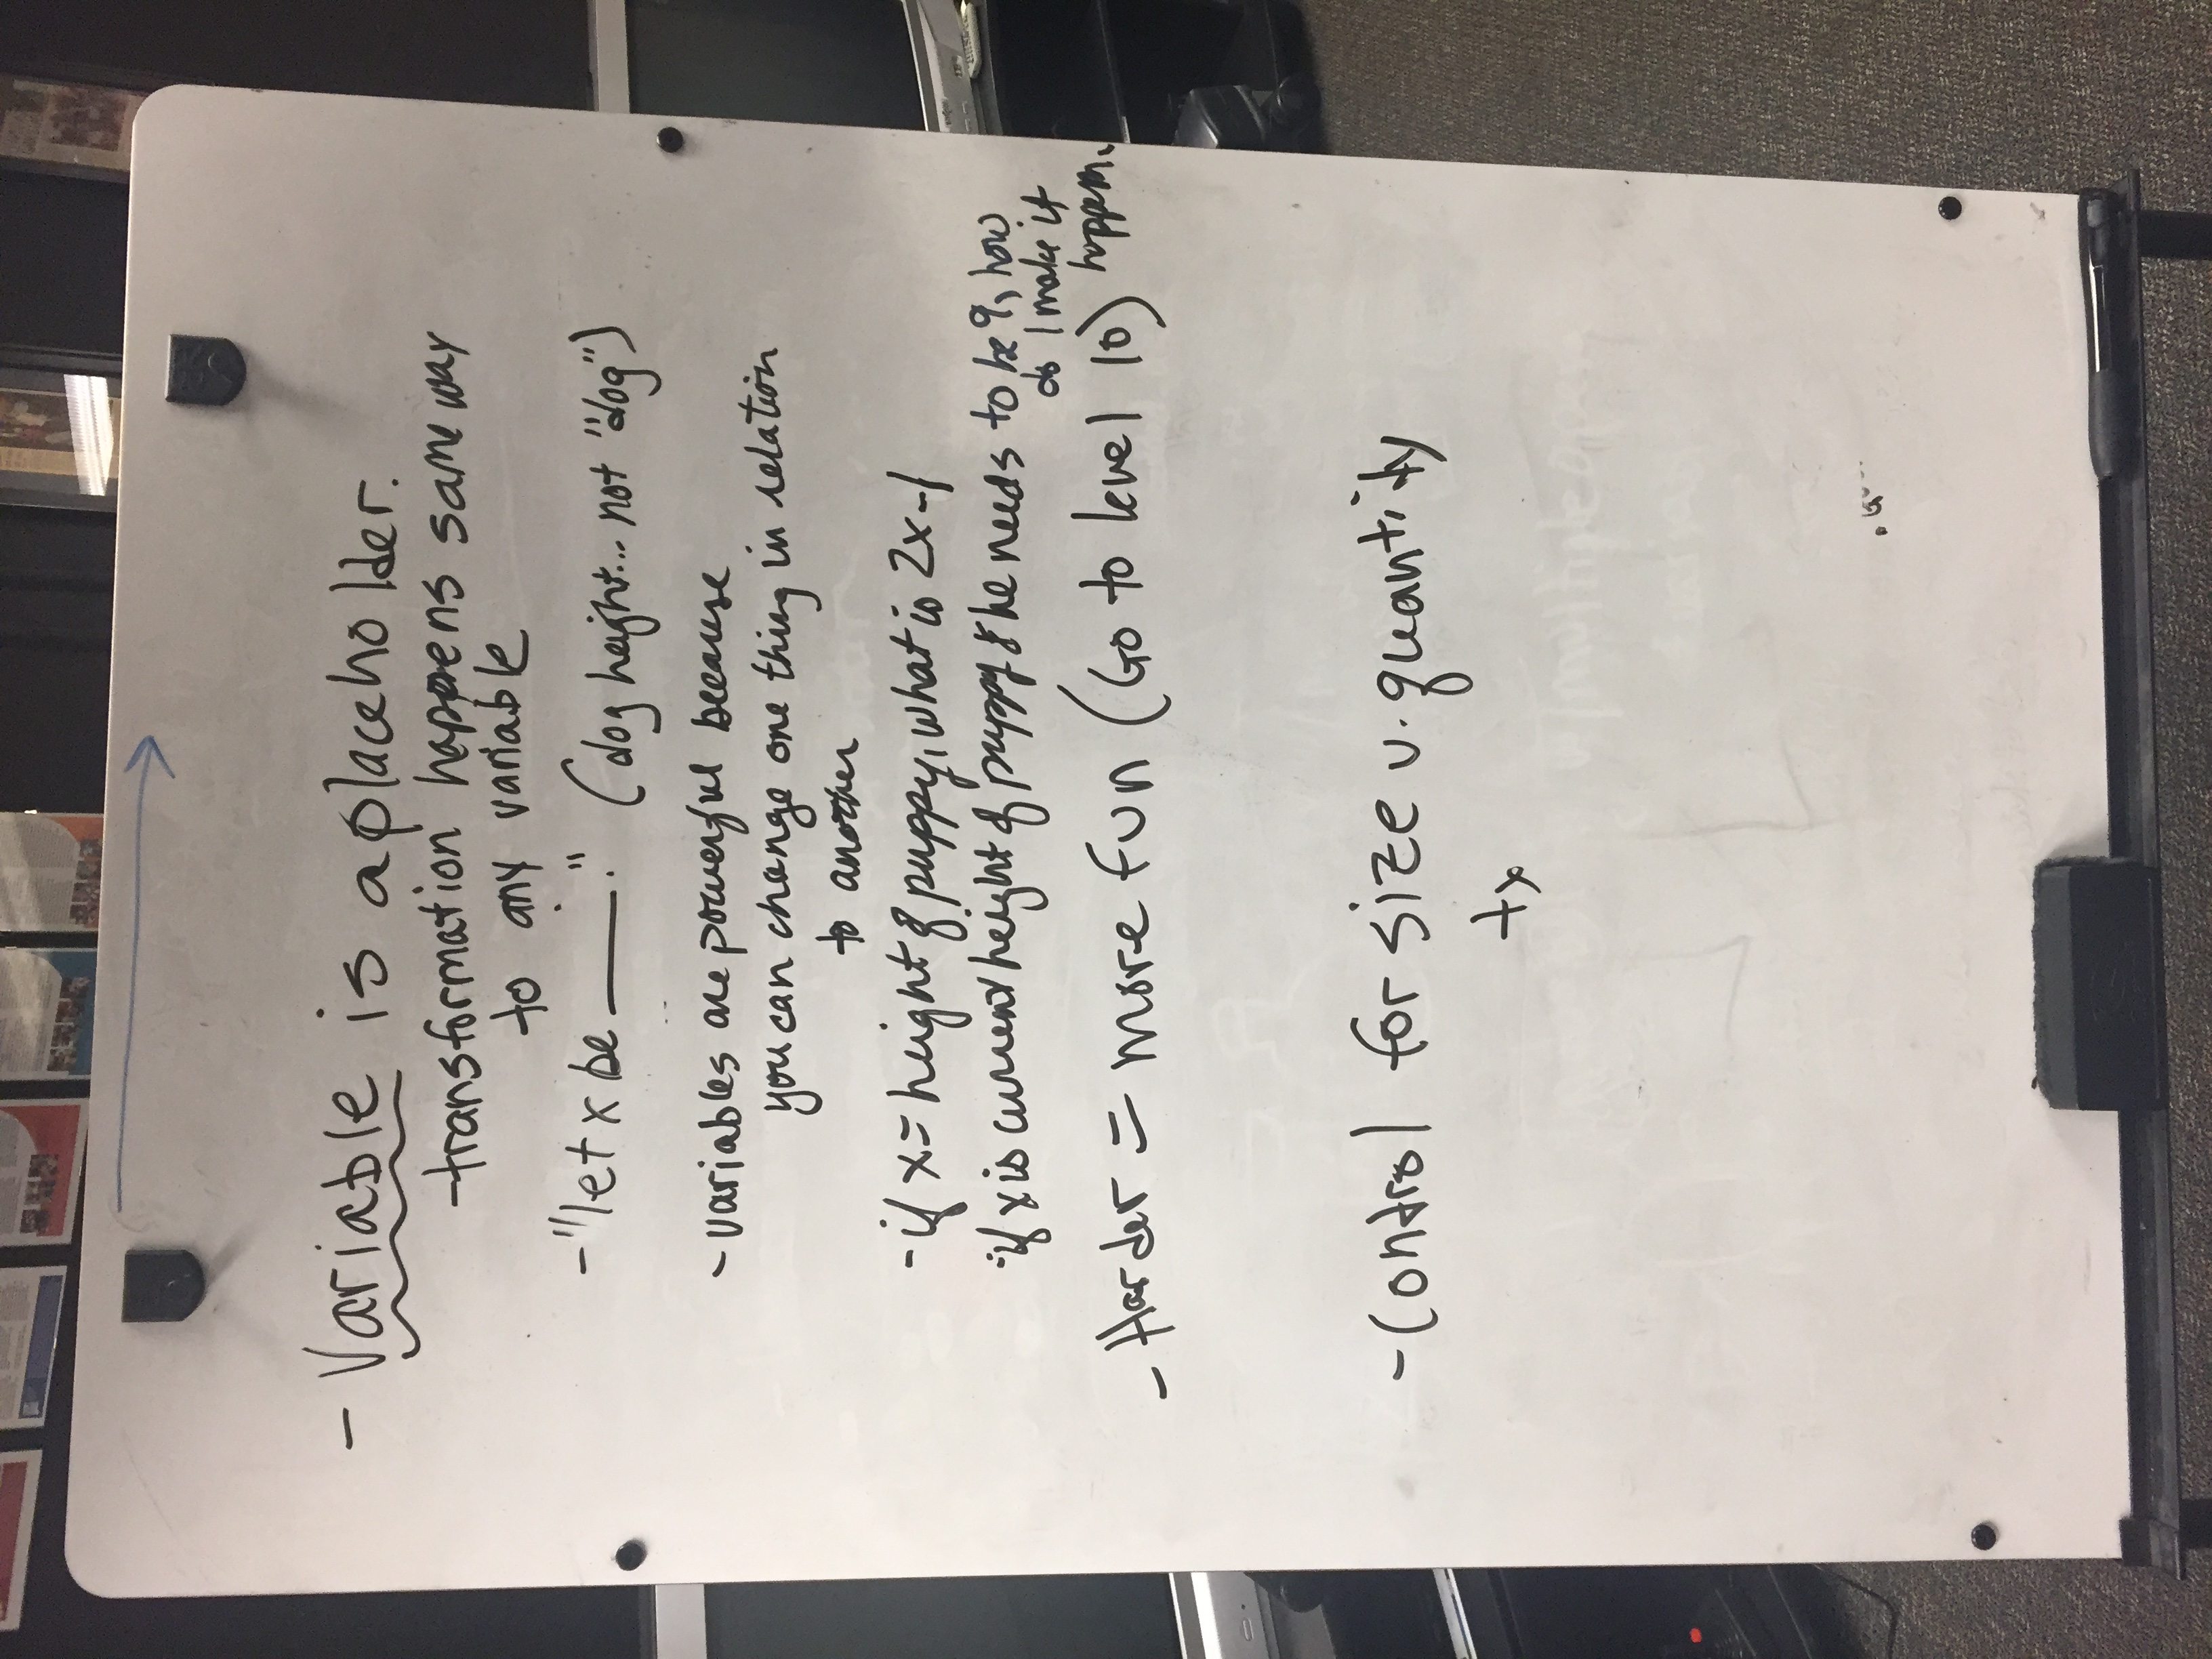 - Variable is a placeholder.
-transformation happens same way
to any variable
-"let x be ____." (dog height... not "dog")
- variables are powerful because
you can change one thing in relation
to another
- if x = height of puppy, what is 2x-1
- if x is current height of puppy & he needs to be 9, how
do I make it
happen.
- Harder = more fun (Go to level 10)
- Control for size v. quantity